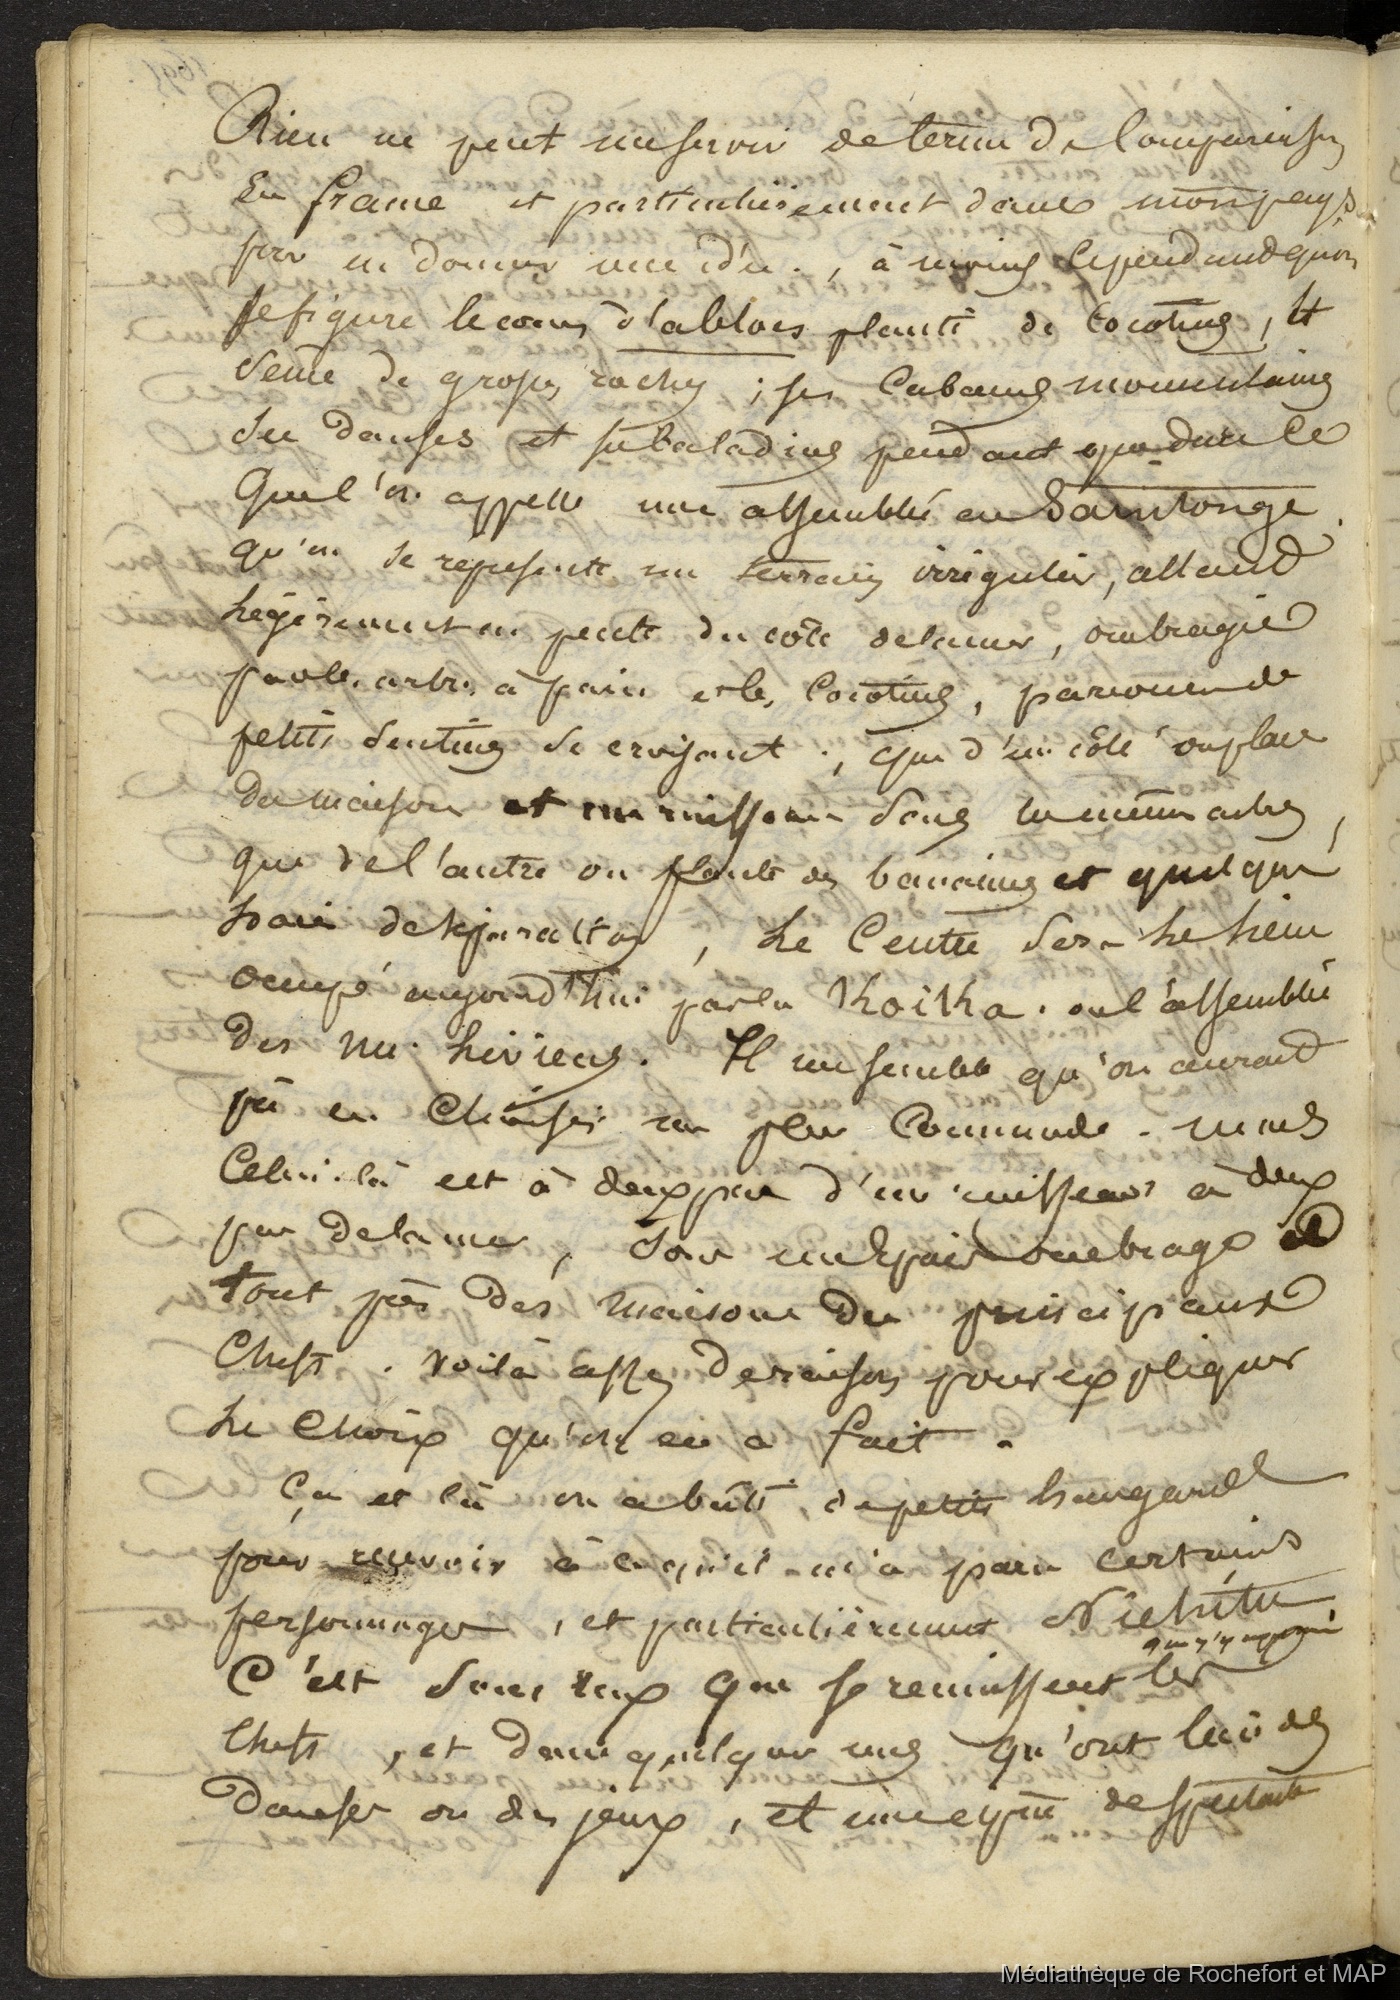 Rien ne peut me servir de terme de Comparaison
En france et particulièrement dans mon pays
pour en donner une idée ., à moins Cependant qu'on
se figure le cours d'ablois planté de Cocotiers, et
Semé de grosses roches ; ses Cabanes momentanées
Ses danses et ses baladins pendant que dure Ce
Que l'on appelle une assemblée en Saintonge.
qu'on se représente un terrain irrégulier, allant
Légèrement en pente du côté de la mer, ombragé
par les arbres à pain et les Cocotiers, parcouru de
petits Sentiers se croisant ., que d'un côté on place
des maisons et un ruisseau sous les mêmes arbres,
que de l'autre on plante des bananiers et quelques
, Le Centre sera le lieu
occupé aujourd'hui par la Khoikha. ou l'assemblée
des nu-hiviens. Il me semble qu'on aurait
pû en Choisir un plus Commode. mais
Celui-là est à deux pas d'un ruisseau à deux
pas de la mer, sous un épais ombrage et
tout près des maisons des principaux
Chefs. Voilà assez de raisons pour expliquer
Le Choix qu'on en a fait.
Çà et là on a bâti de petits hangards
pour recevoir à ce qu'il m'a paru certains
personnages, et particulièrement Niehitu
C'est sous eux que se réunissent les
Chefs, et dans quelques uns qu'ont lieu des
Danses ou des jeux, et une espèce de spectacle
Médiathèque de Rochefort et MAP